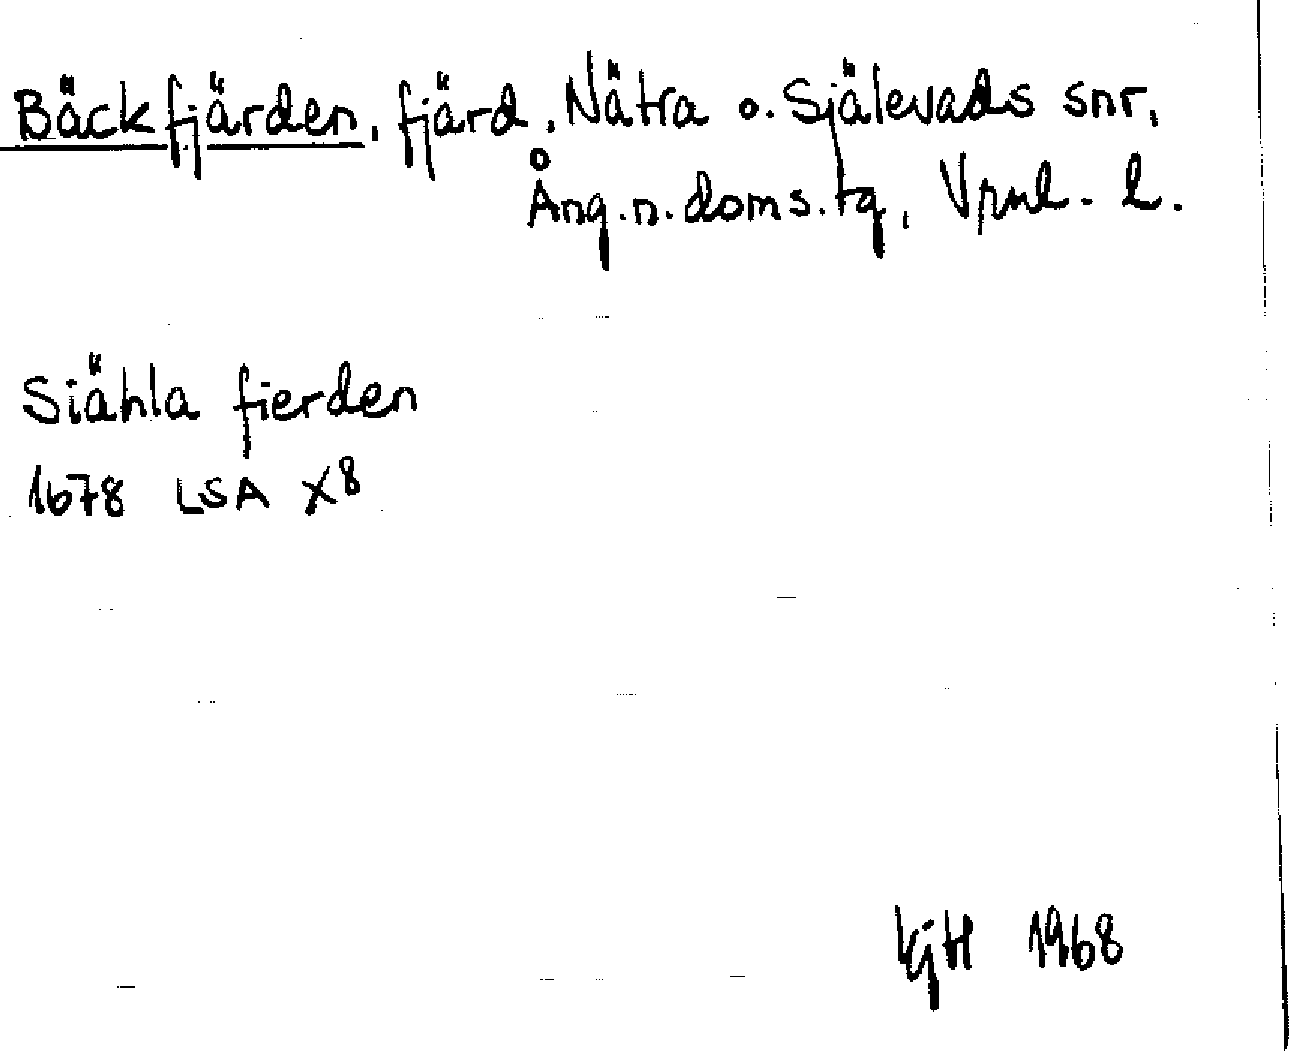 Bäckfjärden, fjärd, Nätra o. Själevads snr,
Ång.n.doms.tg, Vrnl. l.
Siähla fierden
1678 LSA X8
KjH 1968